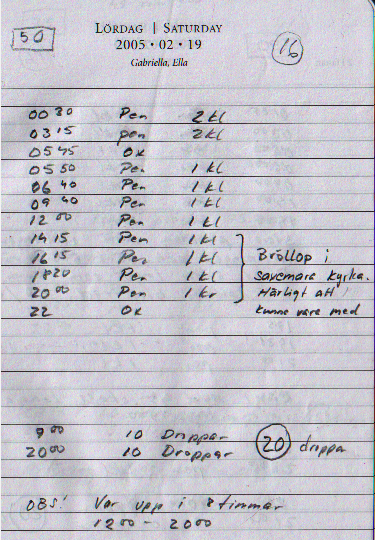 50
LÖRDAG | SATURDAY
2005 • 02 • 19
Gabriella, Ella
16
00 30 Pen 2 kl
03 15 pen 2 kl
05 45 OK
05 50 Pen 1 kl
06 40 Pen 1 kl
09 40 Pen 1 kl
12 00 Pen 1 kl
14 15 Pen 1 kl
16 15 Pen 1 kl Bröllop i
18 20 Pen 1 kl kyrka.
20 00 Pen 1 kr Härligt att
22 OK kunna vara med
9 00 10 Droppar
20 00 10 Droppar 20 droppa
OBS! Var upp i 8 timmar
12 00 - 20 00